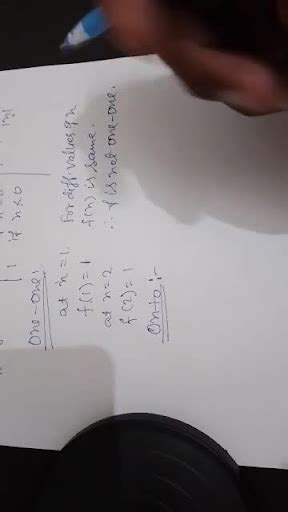 1 if n<0
One-one:
at n=1. For diff. values of n
f(1)=1 f(n) is same.
at n=2 ∴ f is not one-one.
f(2)=1
Onto:-